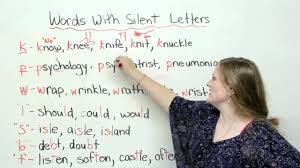 Words With Silent Letters
"No"
K - know, knee, knife, knit, knuckle
P - psychology, psych trist, pneumonia
W - wrap, wrinkle, wrath,
"l" - should, could, would
"S" - isle, aisle, island
b - debt, doubt
"t" - listen, soften, castle, often